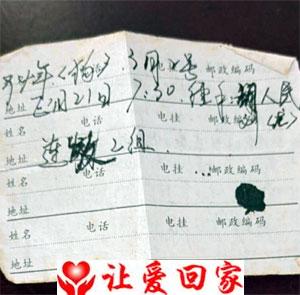 94年（狗）3月2号
邮政编码
地址 正月21日 7:30 人民
姓名 电话 电挂 邮政编码
地址 连 二组
姓名 电话 电挂 邮政编码
地址
姓名 电话 电挂 邮政编码
地址
让爱回家